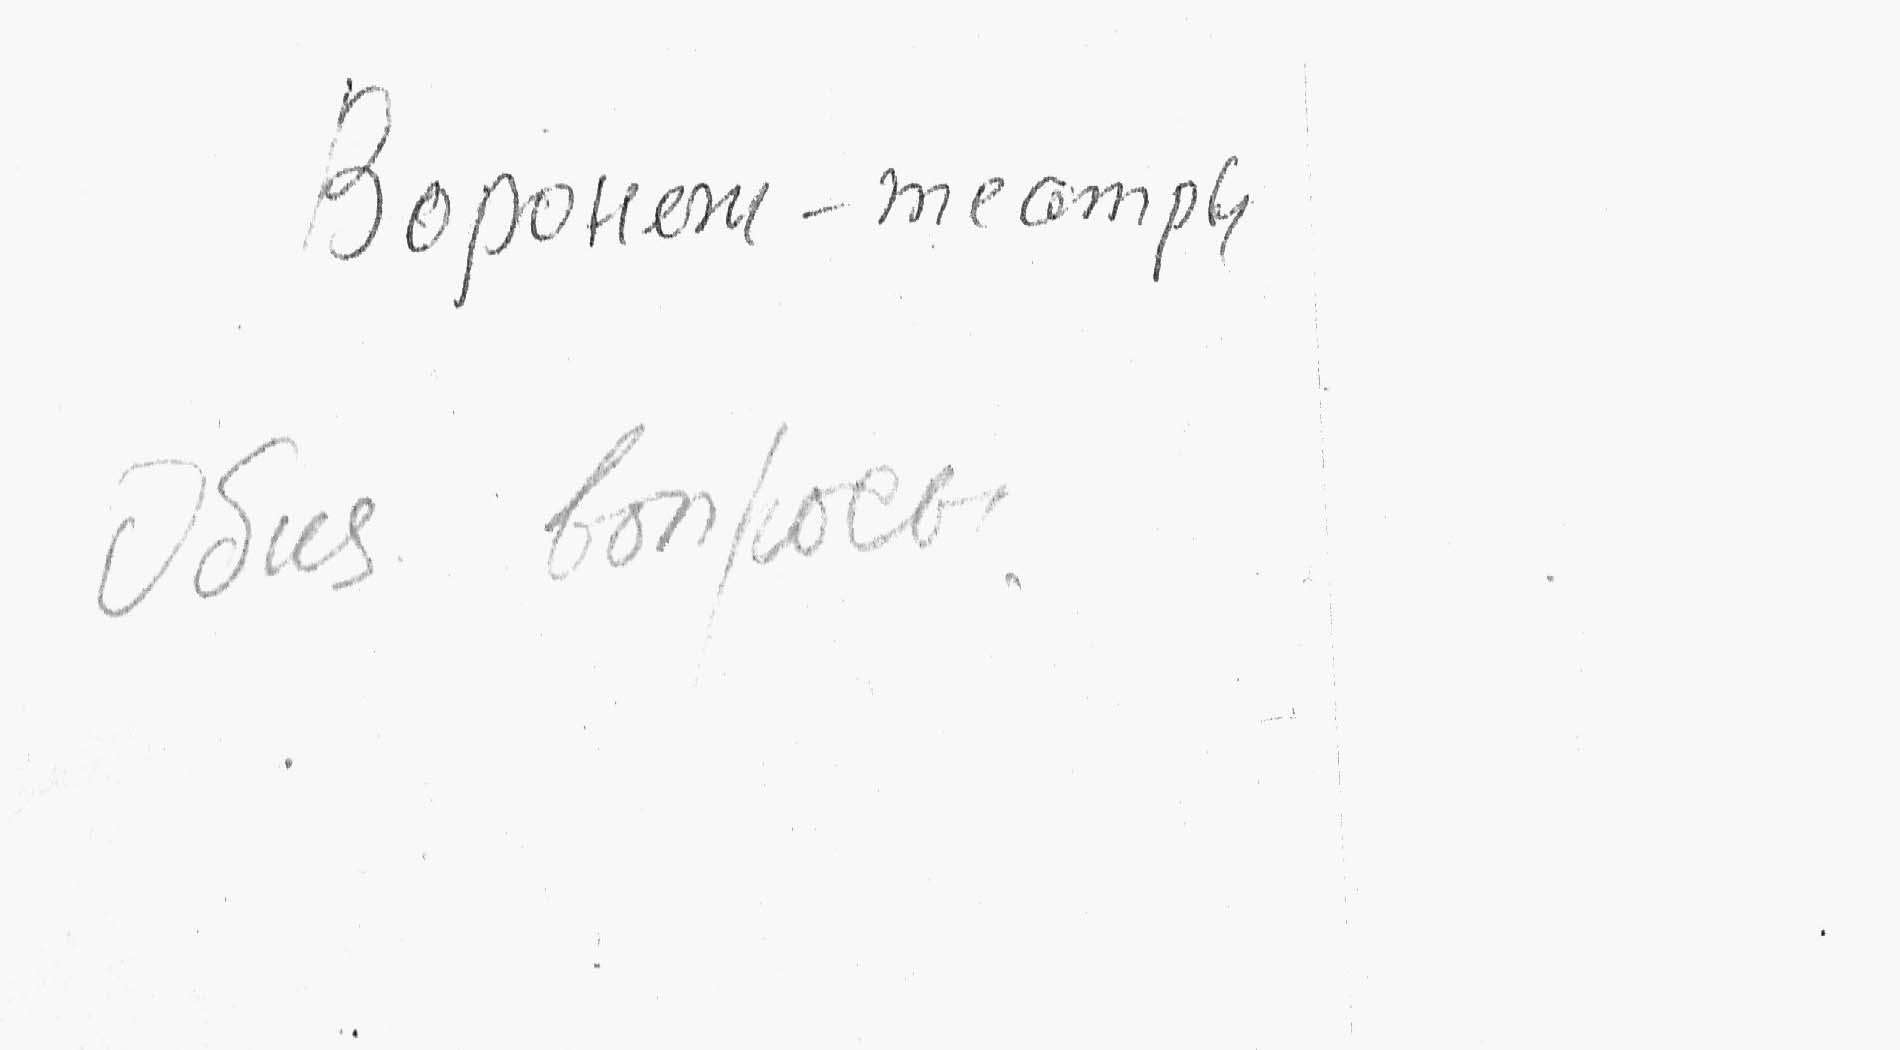 Воронеж - театры
Общ. вопросы